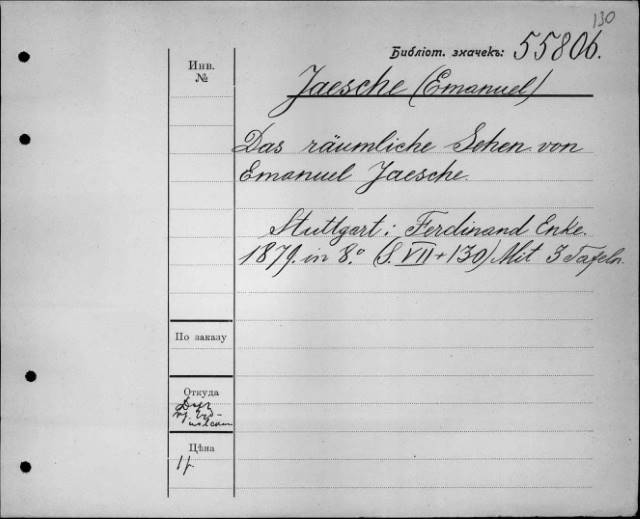 130
Библіот. значекъ: 55806.
Инв.
№
Jaesche (Emanuel)
Das räumliche Sehen von
Emanuel Jaesche.
Stuttgart: Ferdinand Enke.
1879. in 8.° (S. VII + 130) Mit 3 Tafeln.
По заказу
Откуда
Цѣна
1 р.